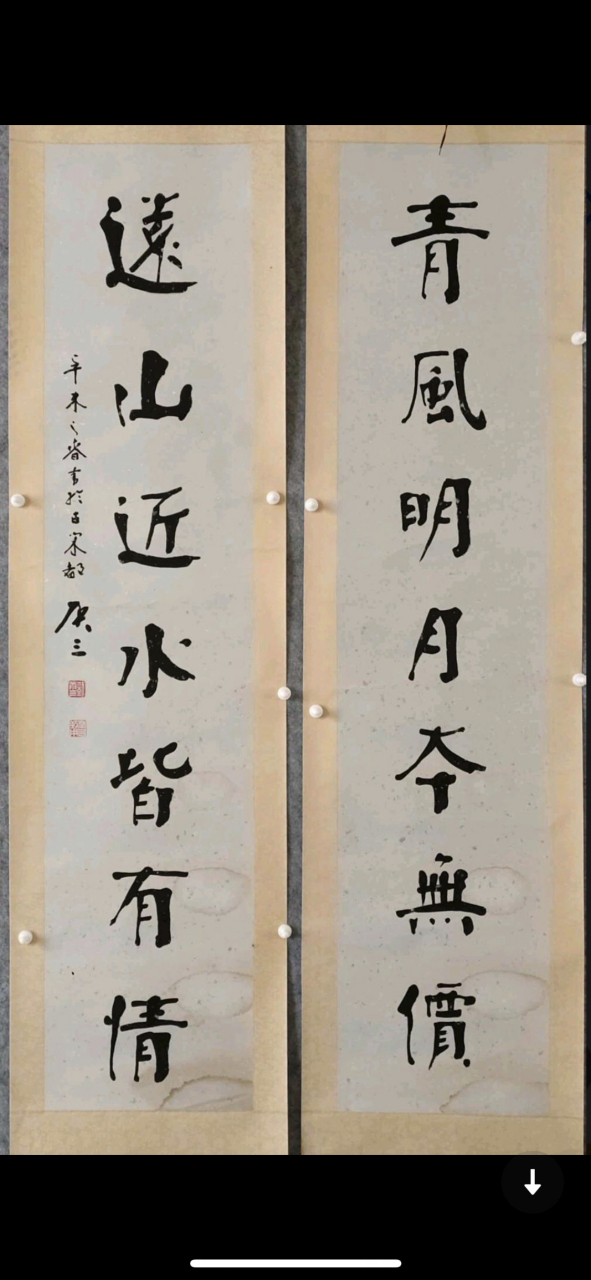 青風明月夲無價
遠山近水皆有情
辛未之春書於古宋都